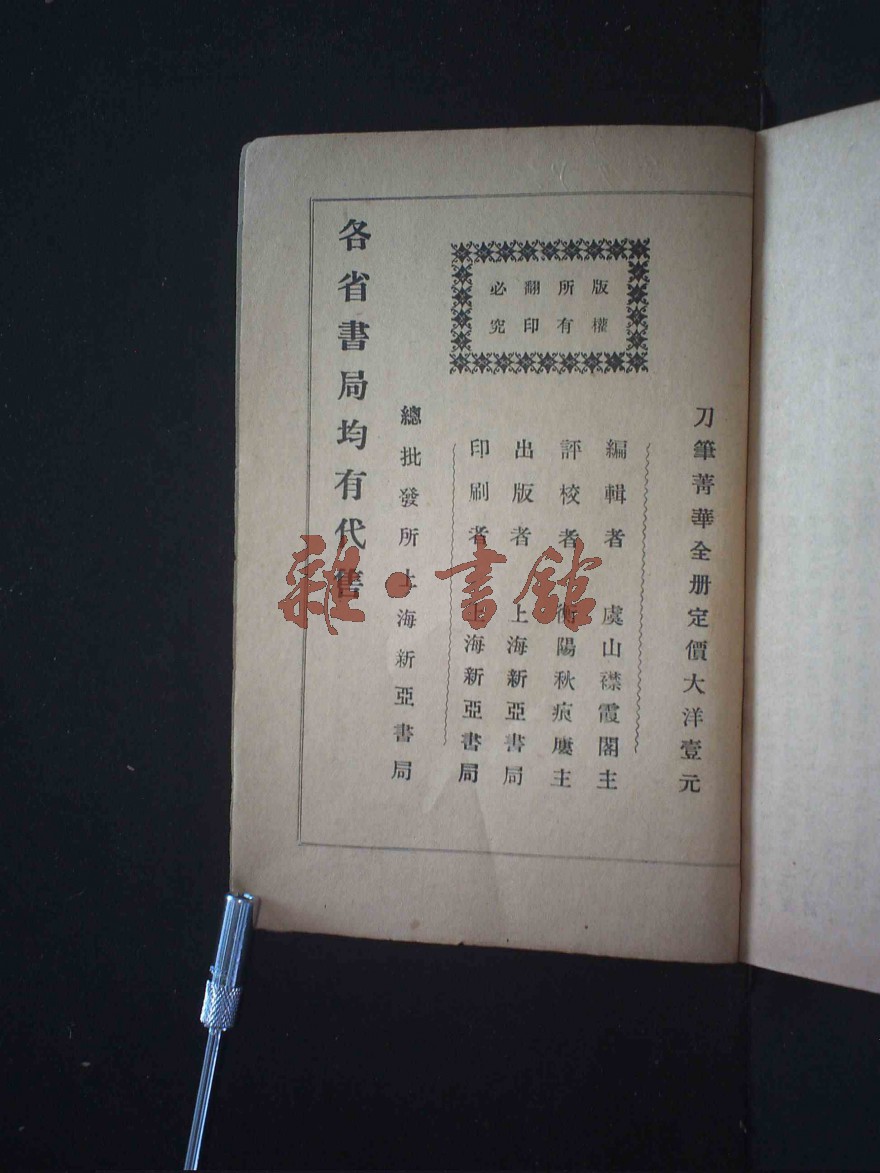 刀筆菁華全册定價大洋壹元
版權
所有
翻印
必究
編輯者 虞山襟霞閣主
評校者 衡陽秋痕廔主
出版者 上海新亞書局
印刷者 上海新亞書局
總批發所上海新亞書局
各省書局均有代售
雜·書館